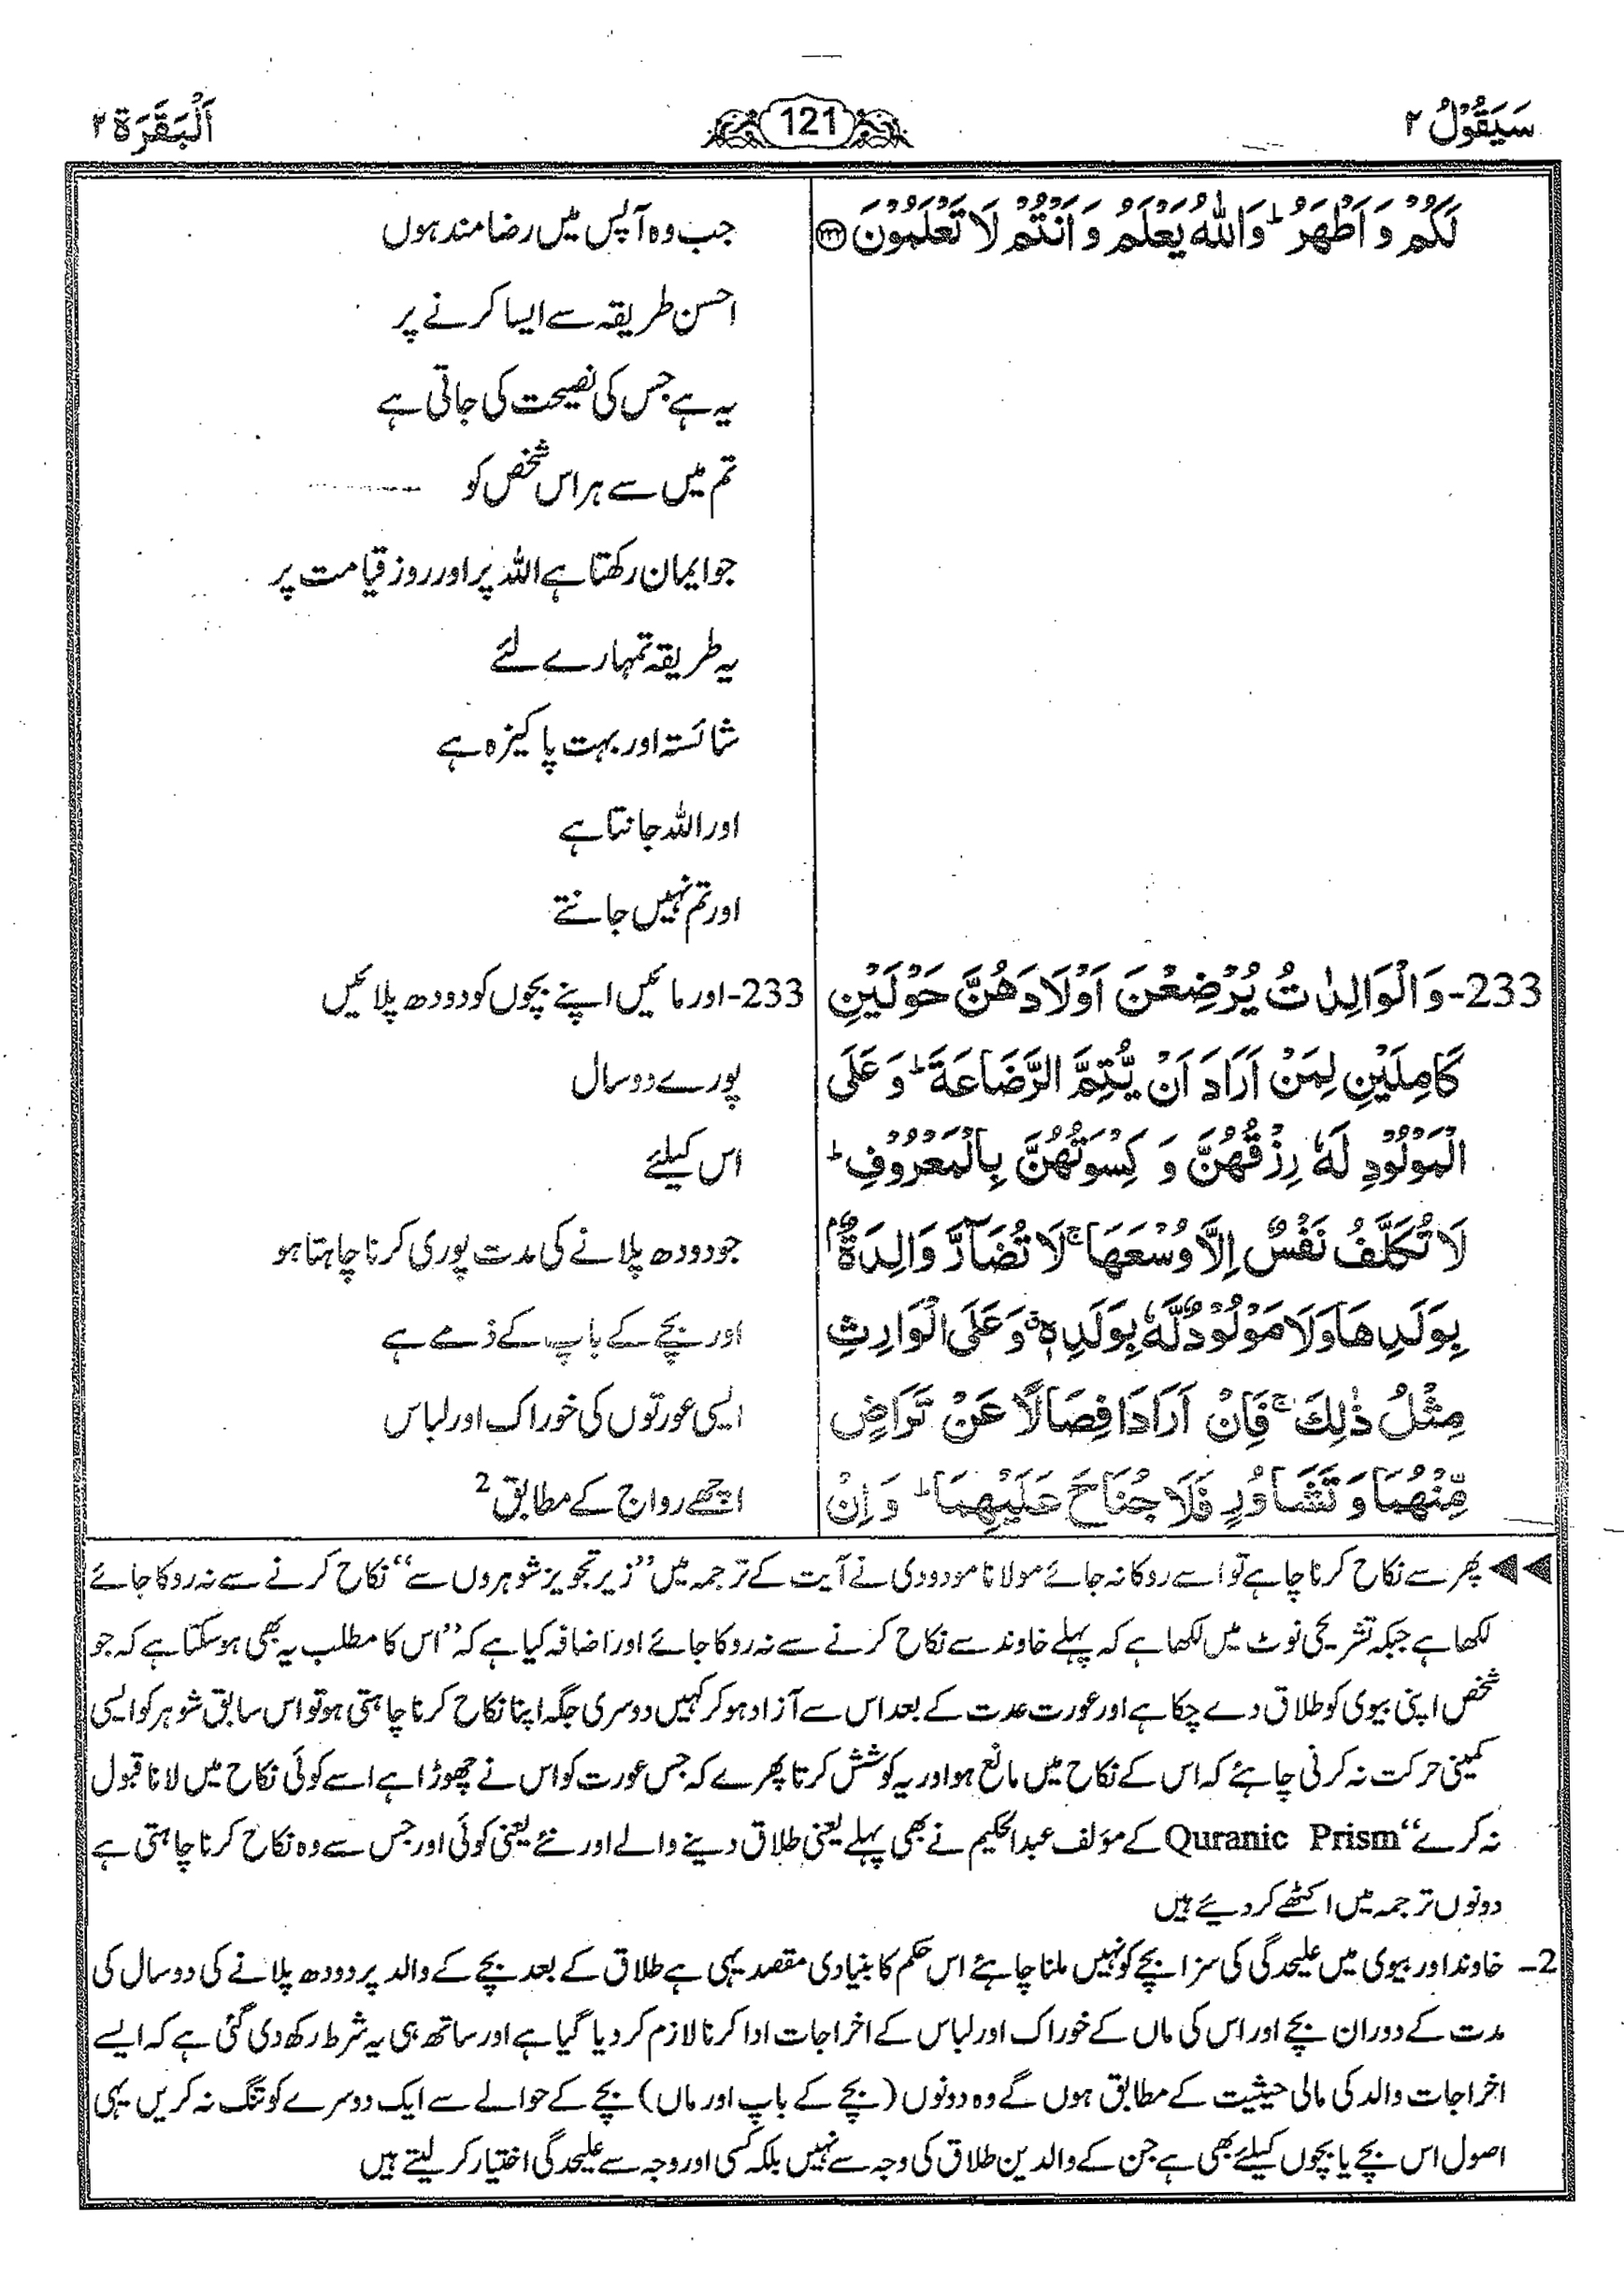 سَيَقُوْلُ ۲
121
اَلْبَقَرَة ۲
لَكُمْ وَ اَطْهَرُ ؕ وَ اللّٰهُ يَعْلَمُ وَ اَنْتُمْ لَا تَعْلَمُوْنَ ﴿۲۳۲﴾
233- وَ الْوَالِدٰتُ يُرْضِعْنَ اَوْلَادَهُنَّ حَوْلَيْنِ
كَامِلَيْنِ لِمَنْ اَرَادَ اَنْ يُّتِمَّ الرَّضَاعَةَ ؕ وَ عَلَى
الْمَوْلُوْدِ لَهٗ رِزْقُهُنَّ وَ كِسْوَتُهُنَّ بِالْمَعْرُوْفِ ؕ
لَا تُكَلَّفُ نَفْسٌ اِلَّا وُسْعَهَا ۚ لَا تُضَآرَّ وَالِدَةٌۢ
بِوَلَدِهَا وَلَا مَوْلُوْدٌ لَّهٗ بِوَلَدِهٖ ۗ وَ عَلَى الْوَارِثِ
مِثْلُ ذٰلِكَ ۚ فَاِنْ اَرَادَا فِصَالًا عَنْ تَرَاضٍ
مِّنْهُمَا وَ تَشَاوُرٍ فَلَا جُنَاحَ عَلَيْهِمَا ؕ وَ اِنْ
جب وہ آپس میں رضا مند ہوں
احسن طریقہ سے ایسا کرنے پر
یہ ہے جس کی نصیحت کی جاتی ہے
تم میں سے ہر اس شخص کو
جو ایمان رکھتا ہے اللہ پر اور روز قیامت پر
یہ طریقہ تمہارے لئے
شائستہ اور بہت پاکیزہ ہے
اور اللہ جانتا ہے
اور تم نہیں جانتے
233- اور مائیں اپنے بچوں کو دودھ پلائیں
پورے دو سال
اس کیلئے
جو دودھ پلانے کی مدت پوری کرنا چاہتا ہو
اور بچے کے باپ کے ذمے ہے
ایسی عورتوں کی خوراک اور لباس
اچھے رواج کے مطابق 2
◀◀ پھر سے نکاح کرنا چاہے تو اسے روکا نہ جائے مولانا مودودی نے آیت کے ترجمہ میں ”زیر تجویز شوہروں سے“ نکاح کرنے سے نہ روکا جائے
لکھا ہے جبکہ تشریحی نوٹ میں لکھا ہے کہ پہلے خاوند سے نکاح کرنے سے نہ روکا جائے اور اضافہ کیا ہے کہ ”اس کا مطلب یہ بھی ہوسکتا ہے کہ جو
شخص اپنی بیوی کو طلاق دے چکا ہے اور عورت عدت کے بعد اس سے آزاد ہو کر کہیں دوسری جگہ اپنا نکاح کرنا چاہتی ہو تو اس سابق شوہر کو ایسی
کمینی حرکت نہ کرنی چاہئے کہ اس کے نکاح میں مانع ہو اور یہ کوشش کرتا پھرے کہ جس عورت کو اس نے چھوڑا ہے اسے کوئی نکاح میں لانا قبول
نہ کرے“ Quranic Prism کے مؤلف عبدالحکیم نے بھی پہلے یعنی طلاق دینے والے اور نئے یعنی کوئی اور جس سے وہ نکاح کرنا چاہتی ہے
دونوں ترجمہ میں اکٹھے کر دیئے ہیں
2- خاوند اور بیوی میں علیحدگی کی سزا بچے کو نہیں ملنا چاہئے اس حکم کا بنیادی مقصد یہی ہے طلاق کے بعد بچے کے والد پر دودھ پلانے کی دو سال کی
مدت کے دوران بچے اور اس کی ماں کے خوراک اور لباس کے اخراجات ادا کرنا لازم کر دیا گیا ہے اور ساتھ ہی یہ شرط رکھ دی گئی ہے کہ ایسے
اخراجات والد کی مالی حیثیت کے مطابق ہوں گے وہ دونوں (بچے کے باپ اور ماں) بچے کے حوالے سے ایک دوسرے کو تنگ نہ کریں یہی
اصول اس بچے یا بچوں کیلئے بھی ہے جن کے والدین طلاق کی وجہ سے نہیں بلکہ کسی اور وجہ سے علیحدگی اختیار کر لیتے ہیں